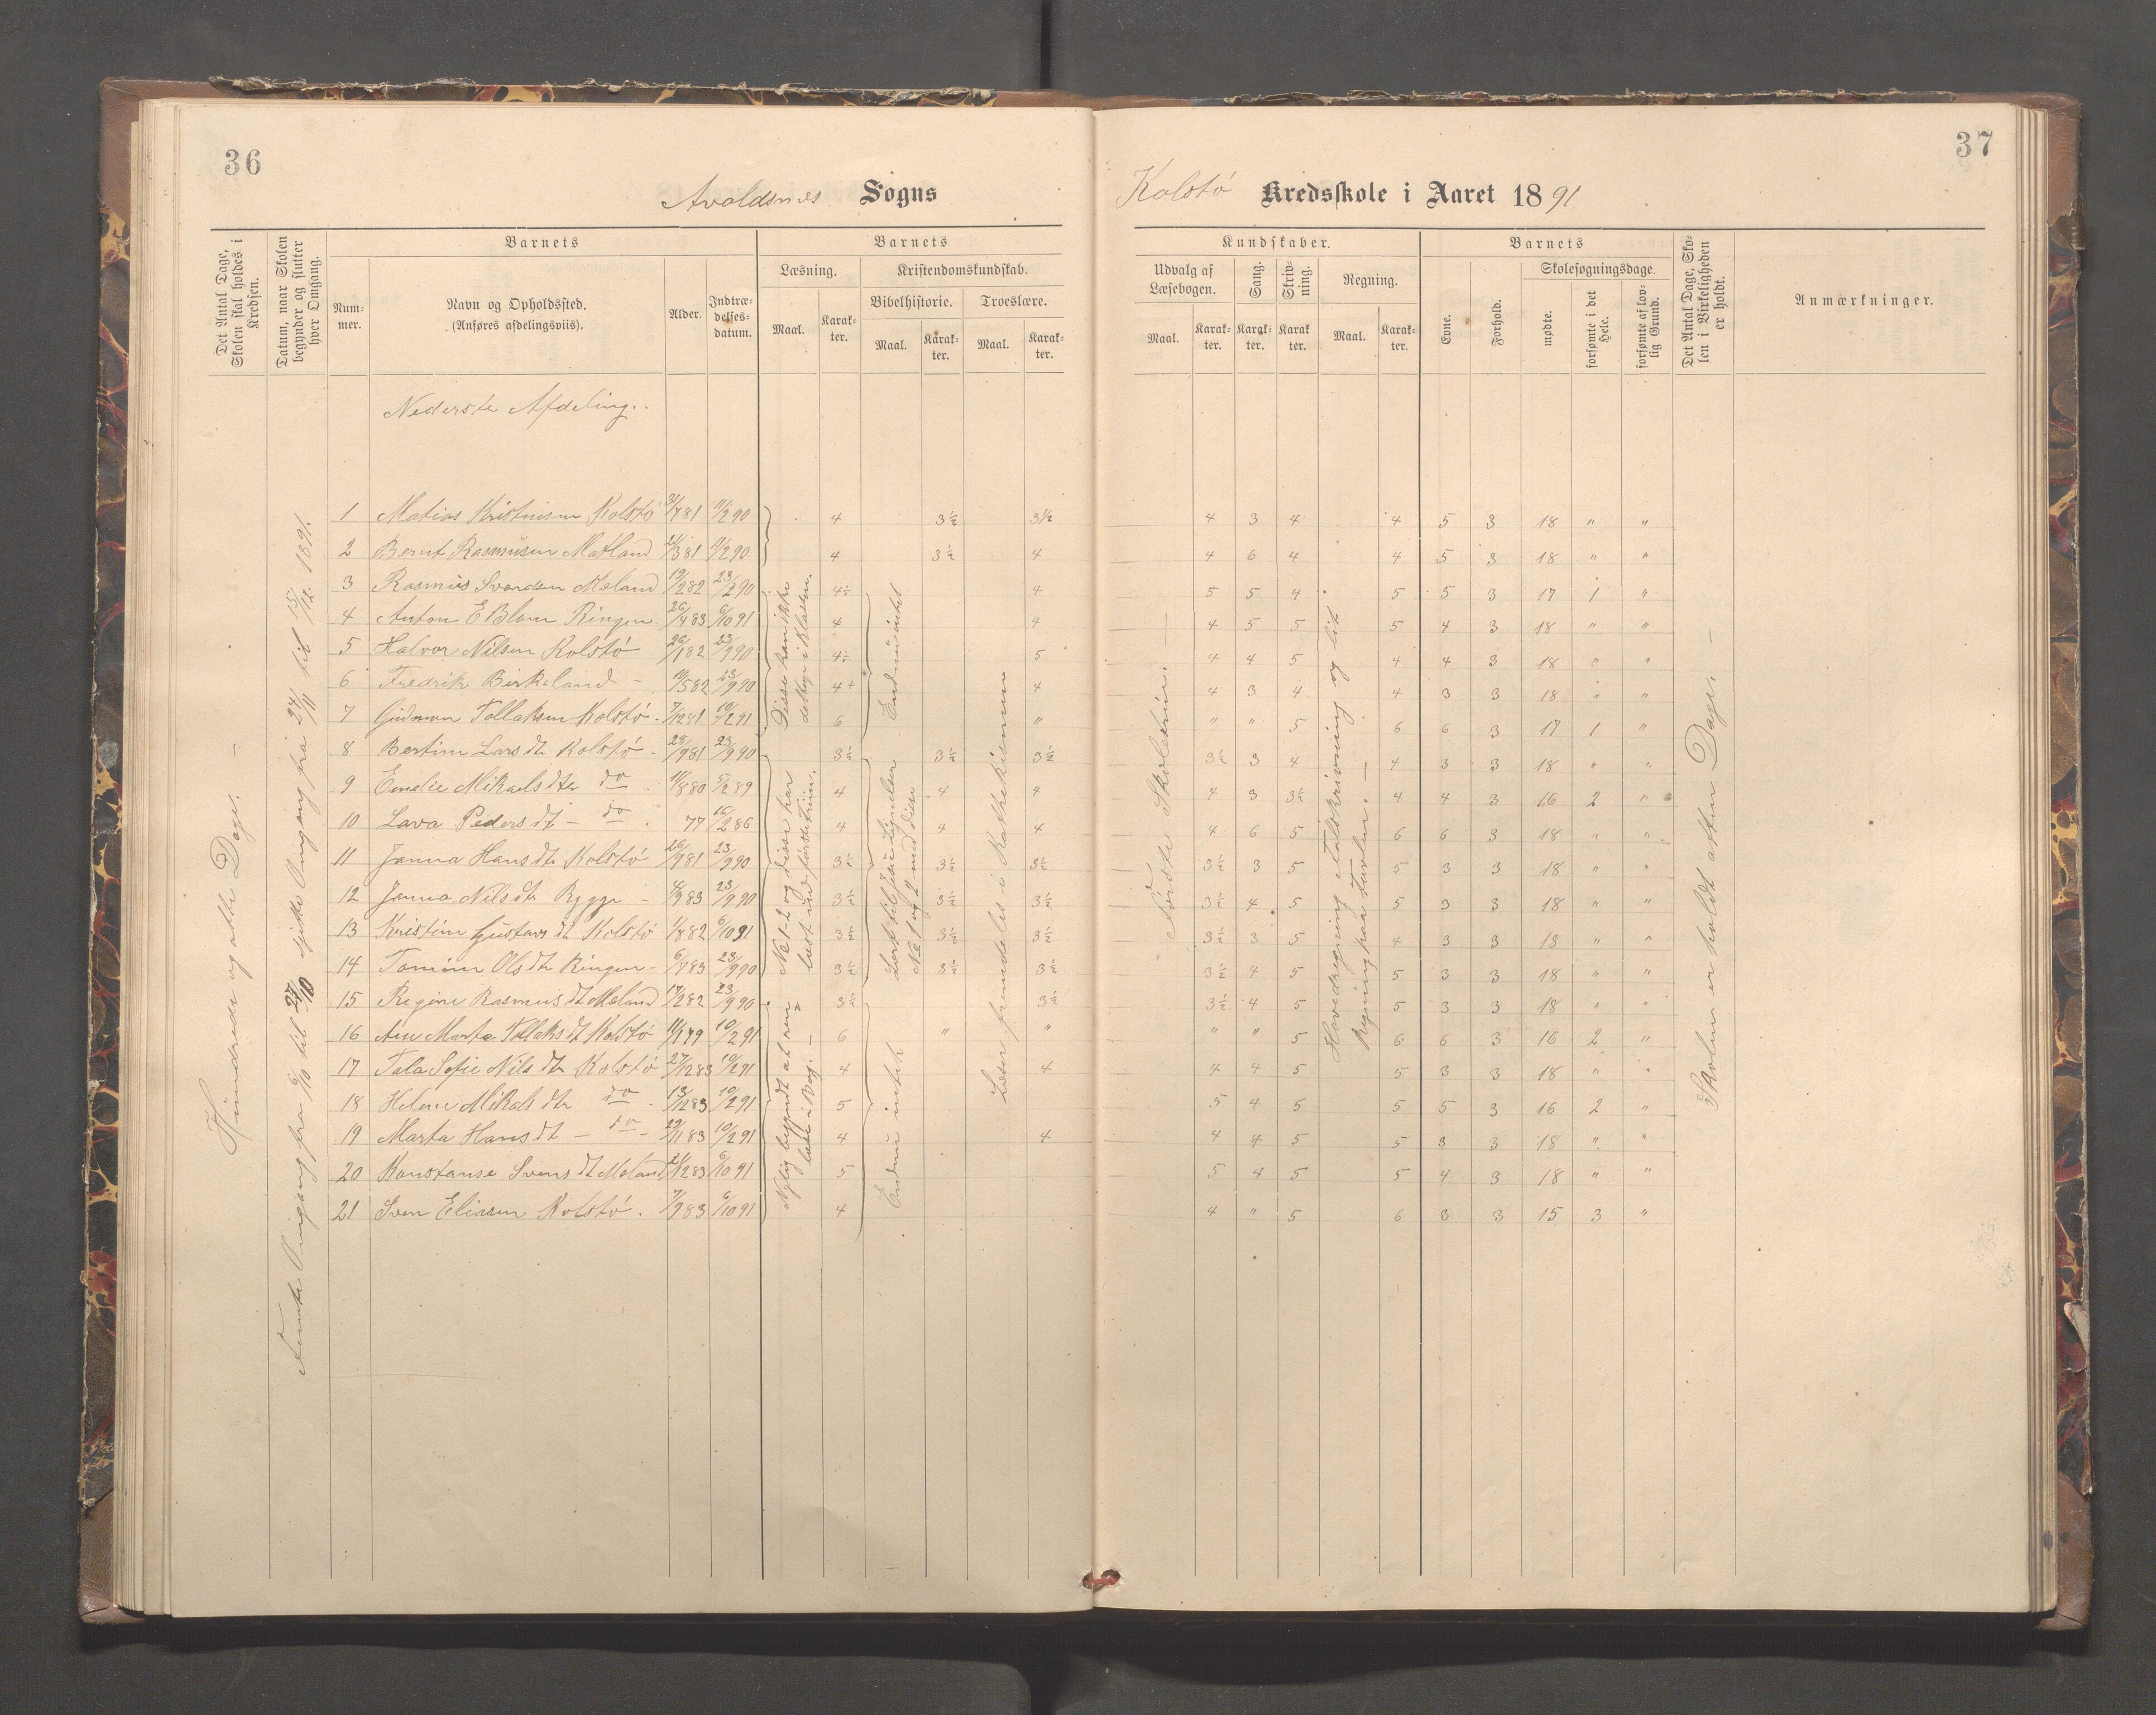 36
37
Avaldsnes Sogns
Kolstø Kredsskole i Aaret 1891
Det Antal Dage, Skolen skal holdes i Kredsen.
Datum, naar Skolen begynder og slutter hver Omgang.
Barnets
Nummer.
Navn og Opholdssted.
(Anføres afdelingsviis).
Alder.
Indtrædelsesdatum.
Barnets
Læsning.
Kristendomskundskab.
Bibelhistorie.
Troeslære.
Maal.
Karakter.
Maal.
Karakter.
Maal.
Karakter.
Kundskaber.
Udvalg af Læsebogen.
Sang.
Skrivning.
Regning.
Maal.
Karakter.
Karakter.
Karakter.
Maal.
Karakter.
Barnets
Evne.
Forhold.
Skolesøgningsdage.
mødte.
forsømte i det Hele.
forsømte af lovlig Grund.
Det Antal Dage, Skolen i Virkeligheden er holdt.
Anmærkninger.
Nederste Afdeling.
Hundrede og otte Dage. —
Femte Omgang fra 6/10 til 27/10 sjette Omgang fra 24/11 til 15/12 1891.
1 Matias Kristensen Kolstø 31/7 81 11/2 90 4 3½ 3½ 4 3 4 4 5 3 18 " "
2 Bernt Rasmusen Matland 21/3 81 11/2 90 4 3½ 4 4 6 4 4 5 3 18 " "
3 Rasmus Svendsen Mæland 19/2 82 23/2 90 4÷ 4 5 5 4 5 5 3 17 1 "
4 Anton E Blom Ringen 26/4 83 6/10 91 4 4 4 5 5 5 4 3 18 " "
5 Halvor Nilsen Kolstø 26/1 82 23/9 90 4÷ 5 4 4 5 4 4 3 18 " "
6 Fredrik Birkeland — 10/5 82 23/9 90 4+ 4 4 3 4 4 3 3 18 " "
7 Gudmon Tollaksen Kolstø 7/12 81 10/2 91 6 " " " 5 6 6 3 17 1 "
8 Bertine Lars dtr Kolstø 28/9 81 23/9 90 3½ 3½ 3½ 3½ 3 4 4 3 3 18 " "
9 Emelie Mikaels dtr do 10/8 80 5/2 89 4 4 4 4 3 3½ 4 4 3 16 2 "
10 Lava Peders dt — do 77 16/2 86 4 4 4 4 6 5 6 6 3 18 " "
11 Janna Hans dtr Kolstø 26/9 81 23/9 90 3½ 3½ 3½ 3½ 3 5 5 3 3 18 " "
12 Janna Nils dtr Rygge — 4/9 83 23/9 90 3½ 3½ 3½ 3½ 4 5 5 3 3 18 " "
13 Kristine Gustavs dt Kolstø 1/8 82 6/10 91 3½ 3½ 3½ 3½ 3 5 4 3 3 18 " "
14 Tomine Ols dtr Ringen — 6/7 83 23/9 90 3½ 3½ 3½ 3½ 4 5 5 3 3 18 " "
15 Regine Rasmus dt Mæland 17/2 82 23/9 90 3½ 3½ 3½ 4 5 5 3 3 18 " "
16 Ane Marta Tollaks dt Kolstø 11/1 79 10/2 91 6 " " " " 5 6 6 3 16 2 "
17 Tala Sofie Nils dtr Kolstø 27/12 83 10/2 91 4 4 4 4 5 5 3 3 18 " "
18 Helene Mikals dtr do 13/12 83 10/2 91 5 5 4 5 5 5 3 16 2 "
19 Marta Hans dt — do — 29/11 83 10/2 91 4 4 4 4 5 5 3 3 18 " "
20 Konstanse Svens dt Mæland 21/12 83 6/10 91 5 5 4 5 5 4 3 18 " "
21 Sven Eliasen Kolstø 7/9 83 6/10 91 4 4 " 5 6 3 3 15 3 "
Disse kan ikke deltage i Klassen.
No 1-2 og disse har læst ud første Trin.
Nylig begyndt at ren læse i Bog. —
Endnu intet
Lært til Jesu Lignelser No 1 og 2 med disse
Endnu intet
Læser fremdeles i Katekismen
Første Skoletrin. —
Hovedregning, Talskrivning og lit Regning paa Tavlen. —
Skolen er holdt atten Dage. —